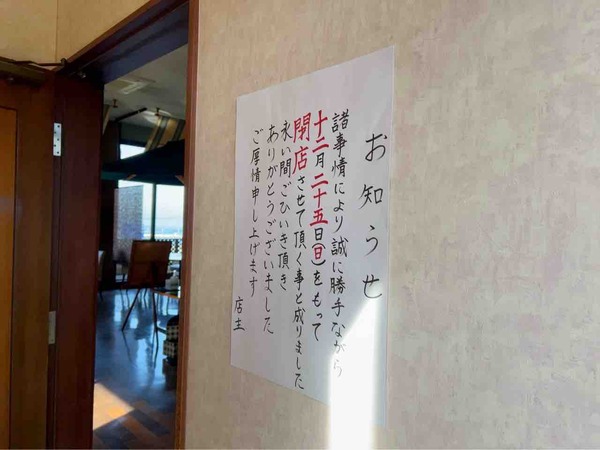 お知らせ
諸事情により誠に勝手ながら
十二月二十五日(日)をもって
閉店させて頂く事と成りました
永い間ごひいき頂き
ありがとうございました
ご厚情申し上げます
店主